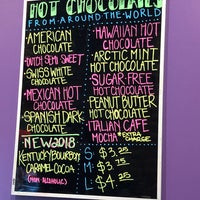 HOT CHOCOLATES
FROM AROUND THE WORLD
·AMERICAN
CHOCOLATE
·DUTCH SEMI SWEET
·SWISS WHITE
CHOCOLATE
·MEXICAN HOT
CHOCOLATE
·SPANISH DARK
CHOCOLATE
NEW 2018
KENTUCKY BOURBON
CARAMEL COCOA
(NON ALCOHOLIC)
·HAWAIIAN HOT
CHOCOLATE
·ARCTIC MINT
HOT CHOCOLATE
·SUGAR-FREE
HOT CHOCOLATE
·PEANUT BUTTER
HOT CHOCOLATE
·ITALIAN CAFE
MOCHA *EXTRA CHARGE
S: $3.25
M: $3.75
L: $4.25